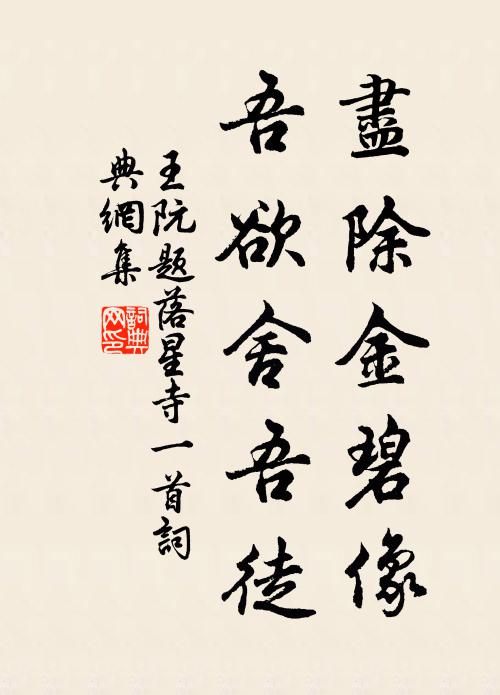 盡除金碧像
吾欲舍吾徒
王阮題落星寺一首詞
典網集
詞典
网印